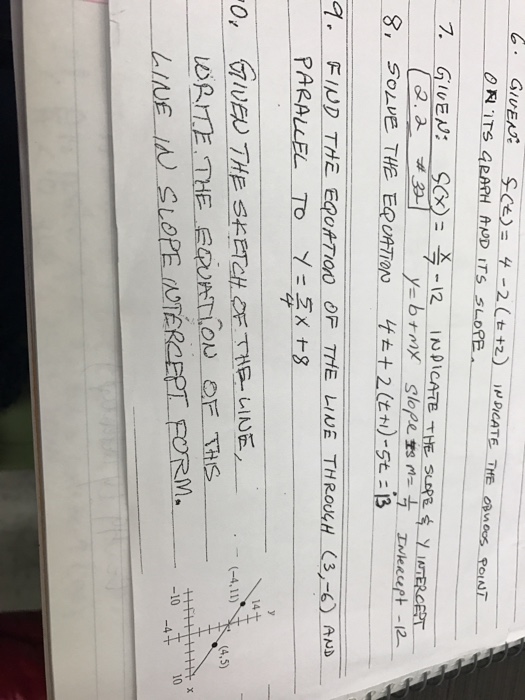 6. GIVEN: f(t) = 4 - 2(t+2) INDICATE THE OBVIOUS POINT
ON ITS GRAPH AND ITS SLOPE.
7. GIVEN: g(x) = x/7 - 12 INDICATE THE SLOPE & Y INTERCEPT
2.2 #32 y=b+mx slope is m= 1/7 Intercept -12
8. SOLVE THE EQUATION 4t + 2(t+1) - 5t = 13
9. FIND THE EQUATION OF THE LINE THROUGH (3,-6) AND
PARALLEL TO Y = 5/4 X + 8
10. GIVEN THE SKETCH OF THE LINE,
WRITE THE EQUATION OF THIS
LINE IN SLOPE INTERCEPT FORM.
y
14
(-4, 11)
(4, 5)
x
-10
10
-4